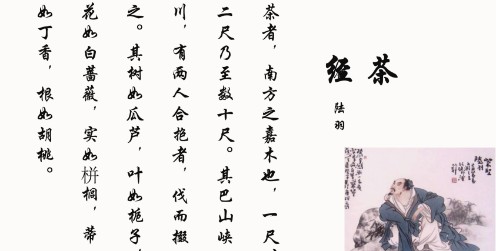 茶经
陆羽
茶者，南方之嘉木也，一尺、
二尺乃至数十尺。其巴山峡
川，有两人合抱者，伐而掇
之。其树如瓜芦，叶如栀子，
花如白蔷薇，实如栟榈，蒂
如丁香，根如胡桃。